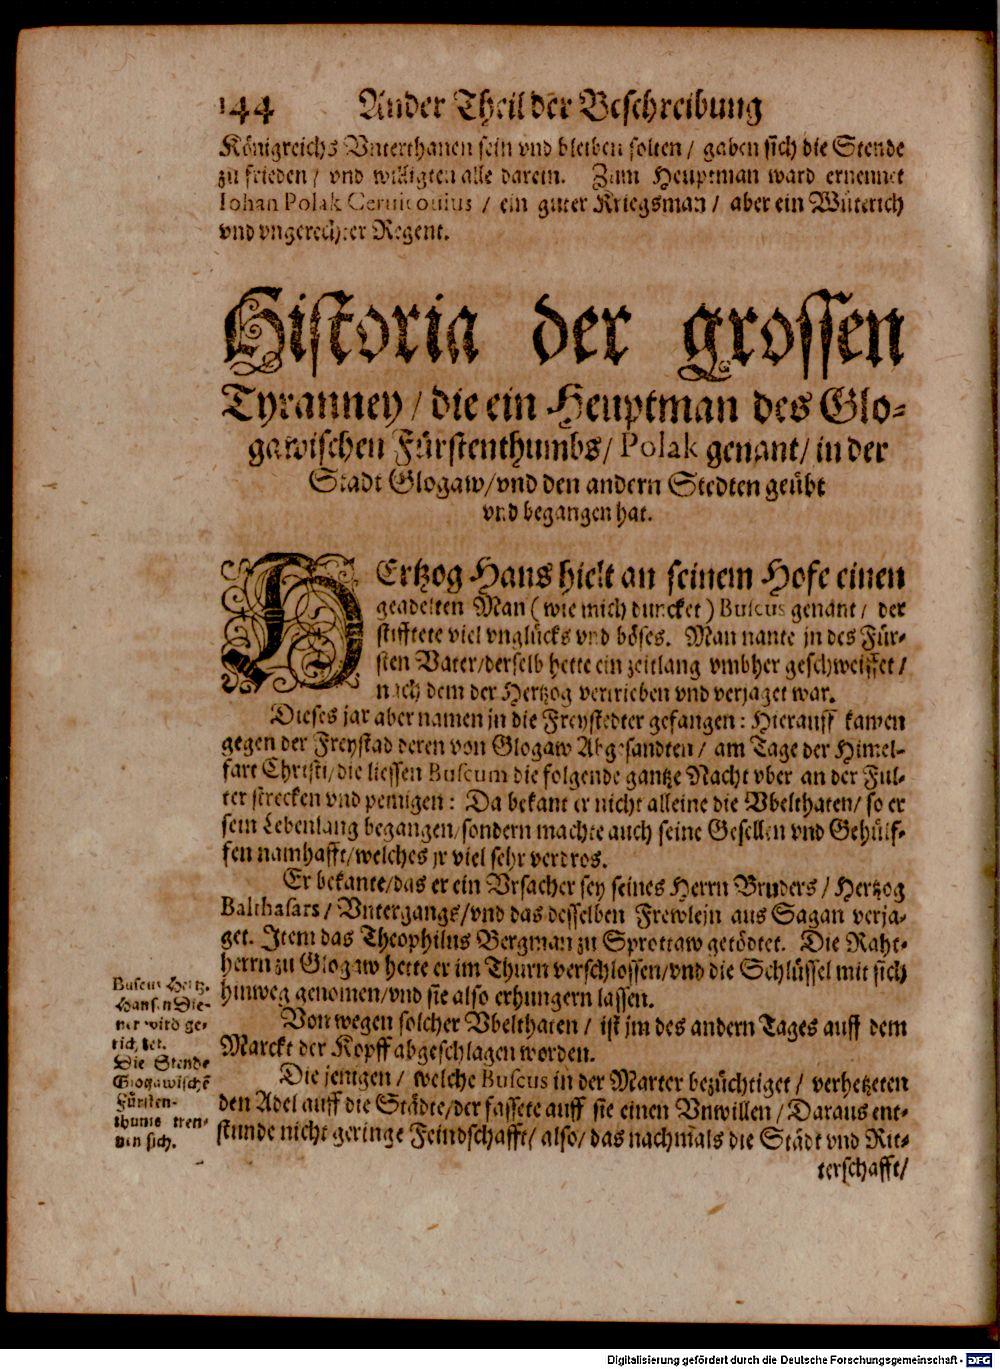 144 Ander Theil der Beschreibung
Königreichs Vnterthanen sein vnd bleiben solten / gaben sich die Stende
zu frieden / vnd willigten alle darein. Zum Heuptman ward ernennet
Iohan Polak Ceruicouius / ein guter Kriegsman / aber ein Wüterich
vnd vngerechter Regent.
Historia der grossen
Tyranney / die ein Heuptman des Glo-
gawischen Fürstenthumbs / Polak genant / in der
Stadt Glogaw / vnd den andern Stedten geübt
vnd begangen hat.
HErtzog Hans hielt an seinem Hofe einen
geadelten Man (wie mich duncket) Buscus genant / der
stifftete viel vnglücks vnd böses. Man nante jn des Für-
sten Vater / derselb hette ein zeitlang vmbher geschweiffet /
nach dem der Hertzog vertrieben vnd verjaget war.
Dieses jar aber namen jn die Freystedter gefangen: Hierauff kamen
gegen der Freystad deren von Glogaw Abgesandten / am Tage der Himel-
fart Christi / die liessen Buscum die folgende gantze Nacht vber an der Ful-
ter strecken vnd peinigen: Da bekant er nicht alleine die Vbelthaten / so er
sein Lebenlang begangen / sondern machte auch seine Gesellen vnd Gehülf-
fen namhafft / welches jr viel sehr verdros.
Er bekante / das er ein Vrsacher sey seines Herrn Bruders / Hertzog
Balthasars / Vntergangs / vnd das desselben Frewlein aus Sagan verja-
get. Item das Theophilus Bergman zu Sprottaw getödtet. Die Raht-
herrn zu Glogaw hette er im Thurn verschlossen / vnd die Schlüssel mit sich
hinweg genomen / vnd sie also erhungern lassen.
Von wegen solcher Vbelthaten / ist jm des andern Tages auff dem
Marckt der Kopff abgeschlagen worden.
Die jenigen / welche Buscus in der Marter bezüchtiget / verhetzeten
den Adel auff die Städte / der fassete auff sie einen Vnwillen / Daraus ent-
stunde nicht geringe Feindschafft / also / das nachmals die Städt vnd Rit-
terschafft /
Buscus Hertz.
Hansen Die-
ner wird ge-
richtet.
Die Stende
Glogawischē
Fürsten-
thums tren-
nen sich.
Digitalisierung gefördert durch die Deutsche Forschungsgemeinschaft - DFG